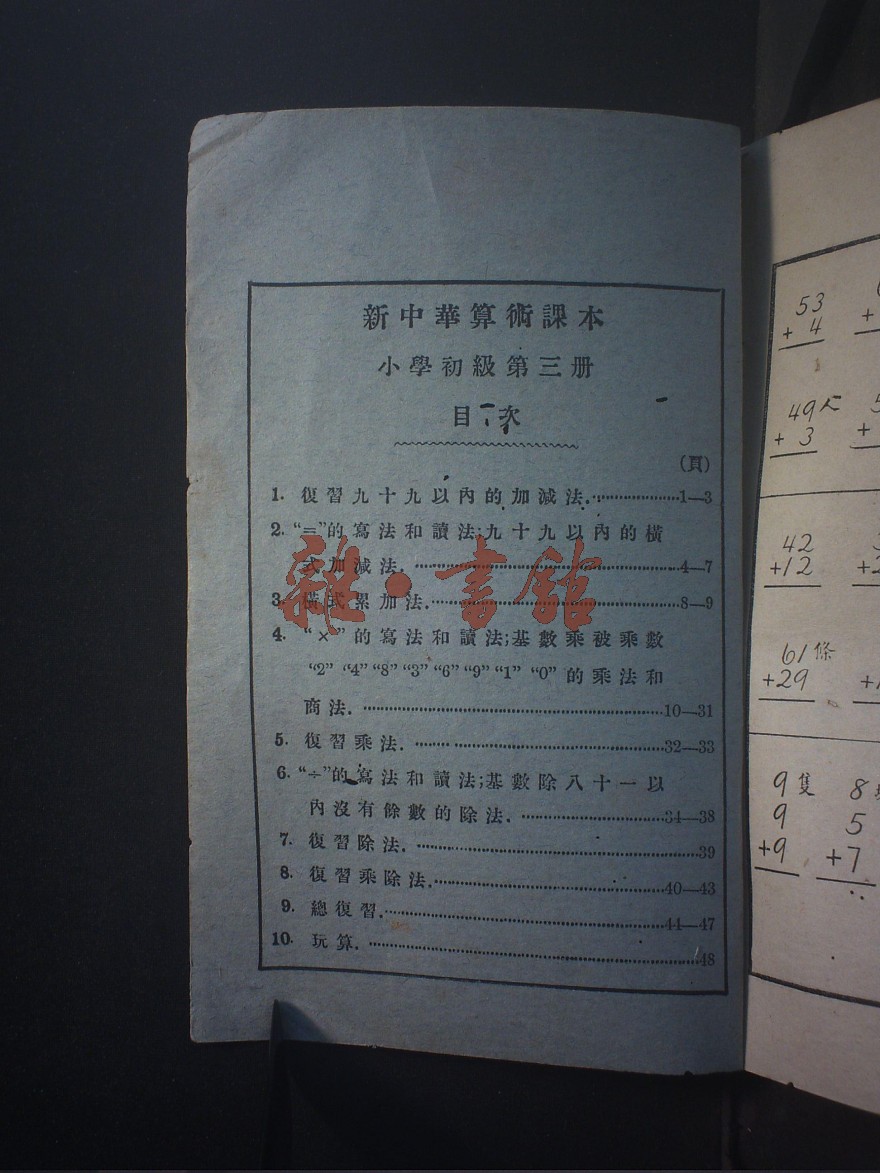 新中華算術課本
小學初級第三册
目次
(頁)
1. 復習九十九以內的加減法. 1—3
2. “=”的寫法和讀法;九十九以內的橫
式加減法. 4—7
3. 橫式累加法. 8—9
4. “×”的寫法和讀法;基數乘被乘數
“2” “4” “8” “3” “6” “9” “1” “0” 的乘法和
商法. 10—31
5. 復習乘法. 32—33
6. “÷”的寫法和讀法;基數除八十一以
內沒有餘數的除法. 34—38
7. 復習除法. 39
8. 復習乘除法. 40—43
9. 總復習. 44—47
10. 玩算. 48
雜·書館
53
+ 4
49
+ 3
42
+12
61條
+29
9隻 8
9 5
+9 +7